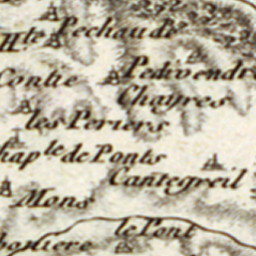 Hte Pechaude
Contie
Pedivendr
Chayres
les Periers
hap le de Ponts
Cantegreil
Mons
le Pont
boniere